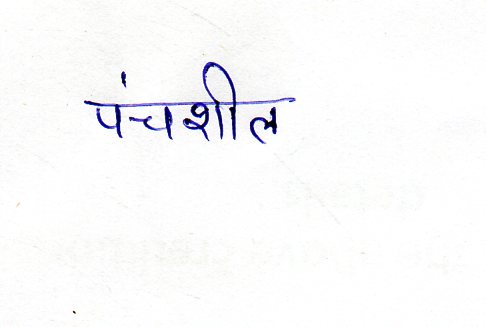 पंचशील